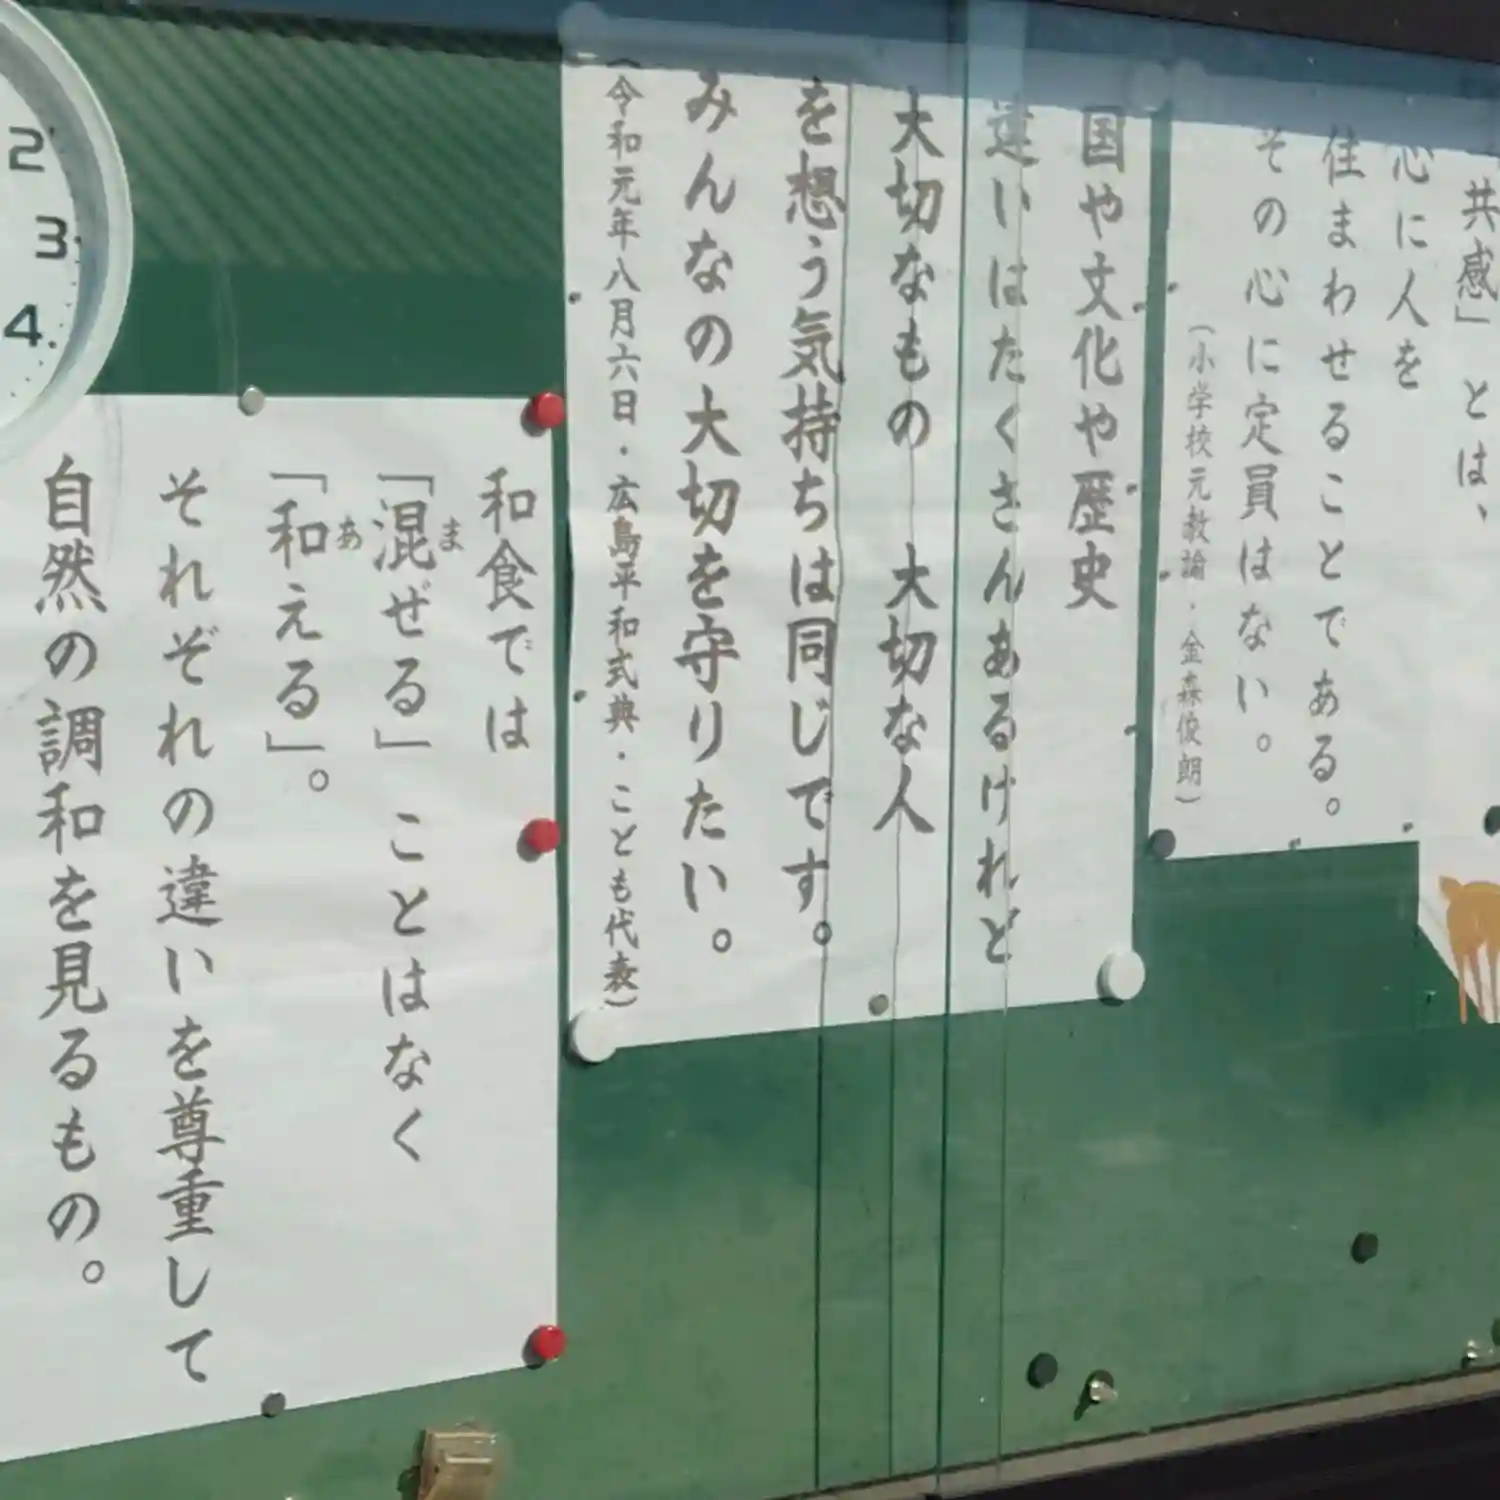 共感」とは、
心に人を
住まわせることである。
その心に定員はない。
(小学校元教諭・金森俊朗)
国や文化や歴史
違いはたくさんあるけれど
大切なもの 大切な人
を想う気持ちは同じです。
みんなの大切を守りたい。
(令和元年八月六日・広島平和式典・こども代表)
和食では
「混ぜる」ことはなく
ま
「和える」。
あ
それぞれの違いを尊重して
自然の調和を見るもの。
2
3
4